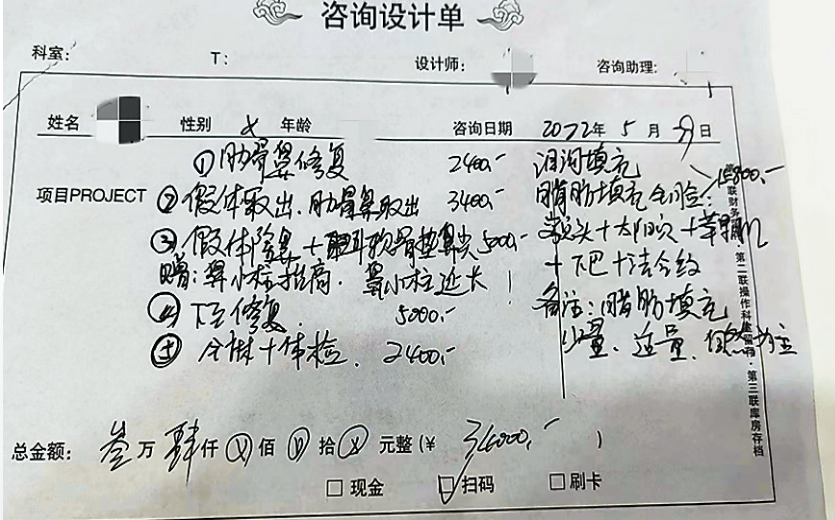 咨询设计单
科室: T: 设计师: 咨询助理:
姓名 性别 女 年龄 咨询日期 2022年 5 月 日
项目PROJECT
① 肋骨鼻修复 2400,-
② 假体取出、肋骨鼻取出 3400,-
③ 假体隆鼻+耳软骨垫鼻尖 5000,-
赠: 鼻小柱抬高、鼻小柱延长
④ 下巴修复、 5000,-
⑤ 全麻+体检、 2400,-
泪沟填充
脂肪填充全脸: 15800,-
额头+太阳穴+苹果肌
+下巴+法令纹
备注:脂肪填充
少量、适量、自然为主
第二联操作科室留存·第三联库房存档
总金额: 叁 万 肆 仟 佰 拾 元整(¥ 34000,- )
□现金 ☑扫码 □刷卡